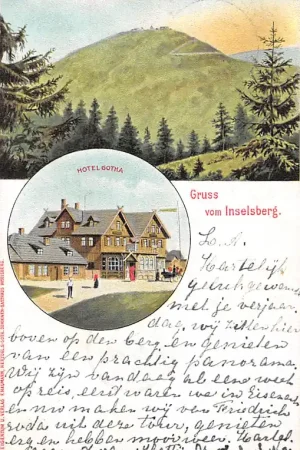 HOTEL GOTHA
Gruss
vom Inselsberg.
L. A.
Hartelijk
gelukgewenscht
met je verjaar-
dag, wij zitten hier
boven op den berg en genieten
van een prachtig panorama.
Wij zijn vandaag al eene week
op reis, eerst waren we in Eisenach
en nu maken wij van Friedrich
roda uit deze tour, genieten
erg en hebben mooi weer. Hartel.